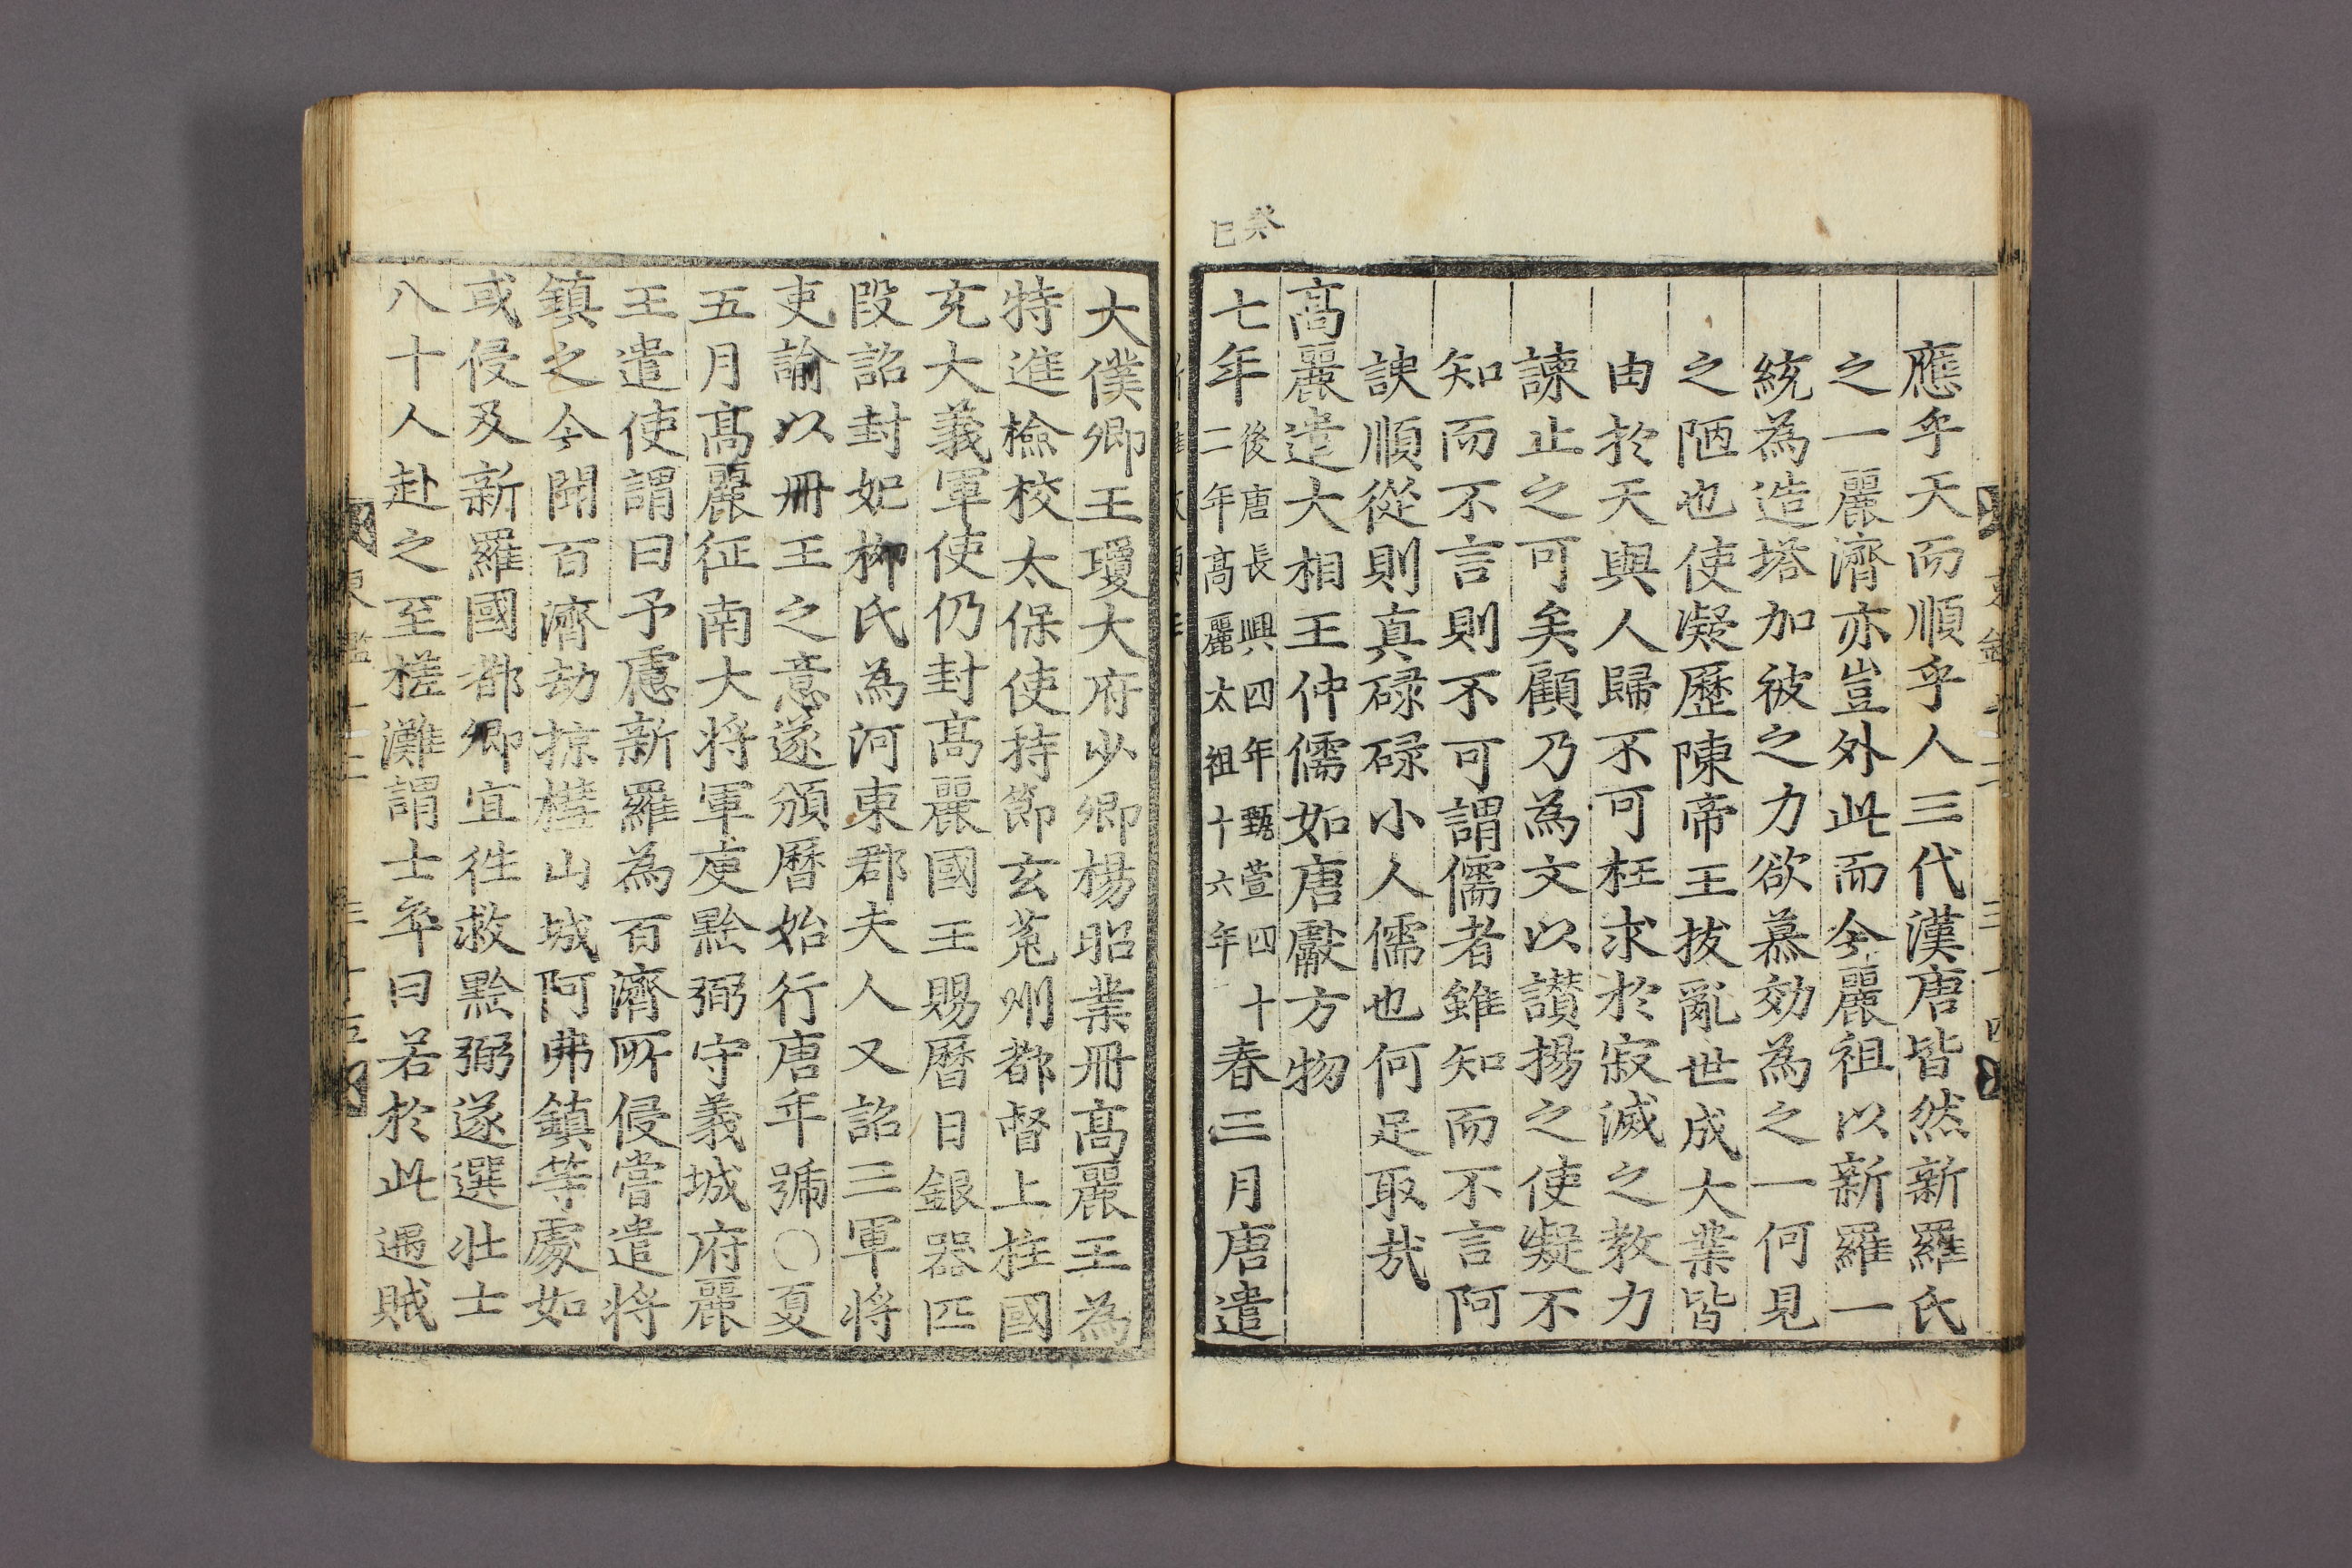 應乎天而順乎人三代漢唐皆然新羅氏
之一麗濟亦豈外此而今麗祖以新羅一
統為造塔加彼之力欲慕効為之一何見
之陋也使凝歷陳帝王拔亂世成大業皆
由於天與人歸不可枉求於寂滅之教力
諫止之可矣顧乃為文以讃揚之使凝不
知而不言則不可謂儒者雖知而不言阿
諛順從則真碌碌小人儒也何足取㢤
髙麗遣大相王仲儒如唐獻方物
癸巳
七年後唐長興四年甄萱四十二年髙麗太祖十六年春三月唐遣
大僕卿王瓊大府少卿楊昭業冊髙麗王為
特進檢校太保使持節玄菟州都督上柱國
充大義軍使仍封髙麗國王賜曆日銀器匹
段詔封妃柳氏為河東郡夫人又詔三軍将
吏諭以冊王之意遂頒曆始行唐年號○夏
五月髙麗征南大将軍庾黔弼守義城府麗
王遣使謂曰予慮新羅為百濟所侵嘗遣将
鎮之今聞百濟劫掠槥山城阿弗鎮等處如
或侵及新羅國都卿宜徃救黔弼遂選壯士
八十人赴之至槎灘謂士卒曰若於此遇賊